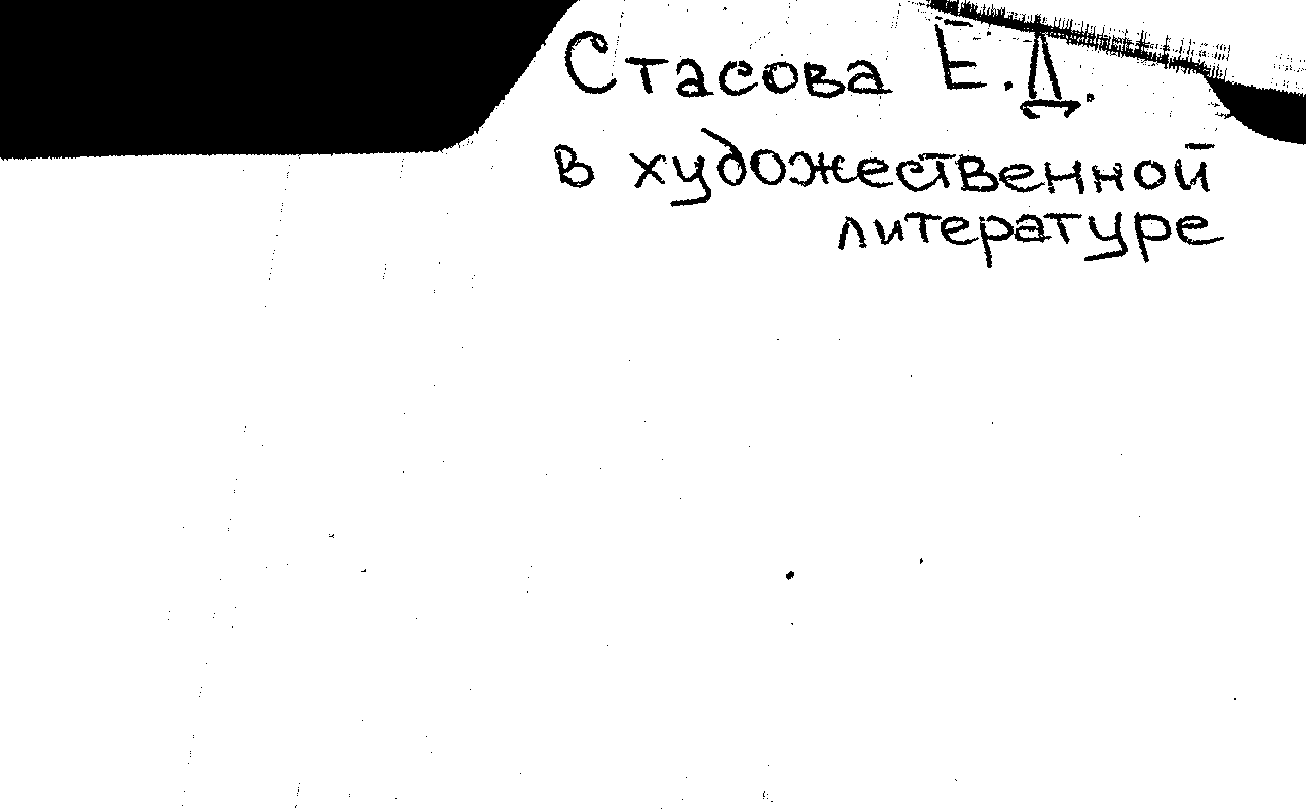 Стасова Е.Д.
в художественной
литературе